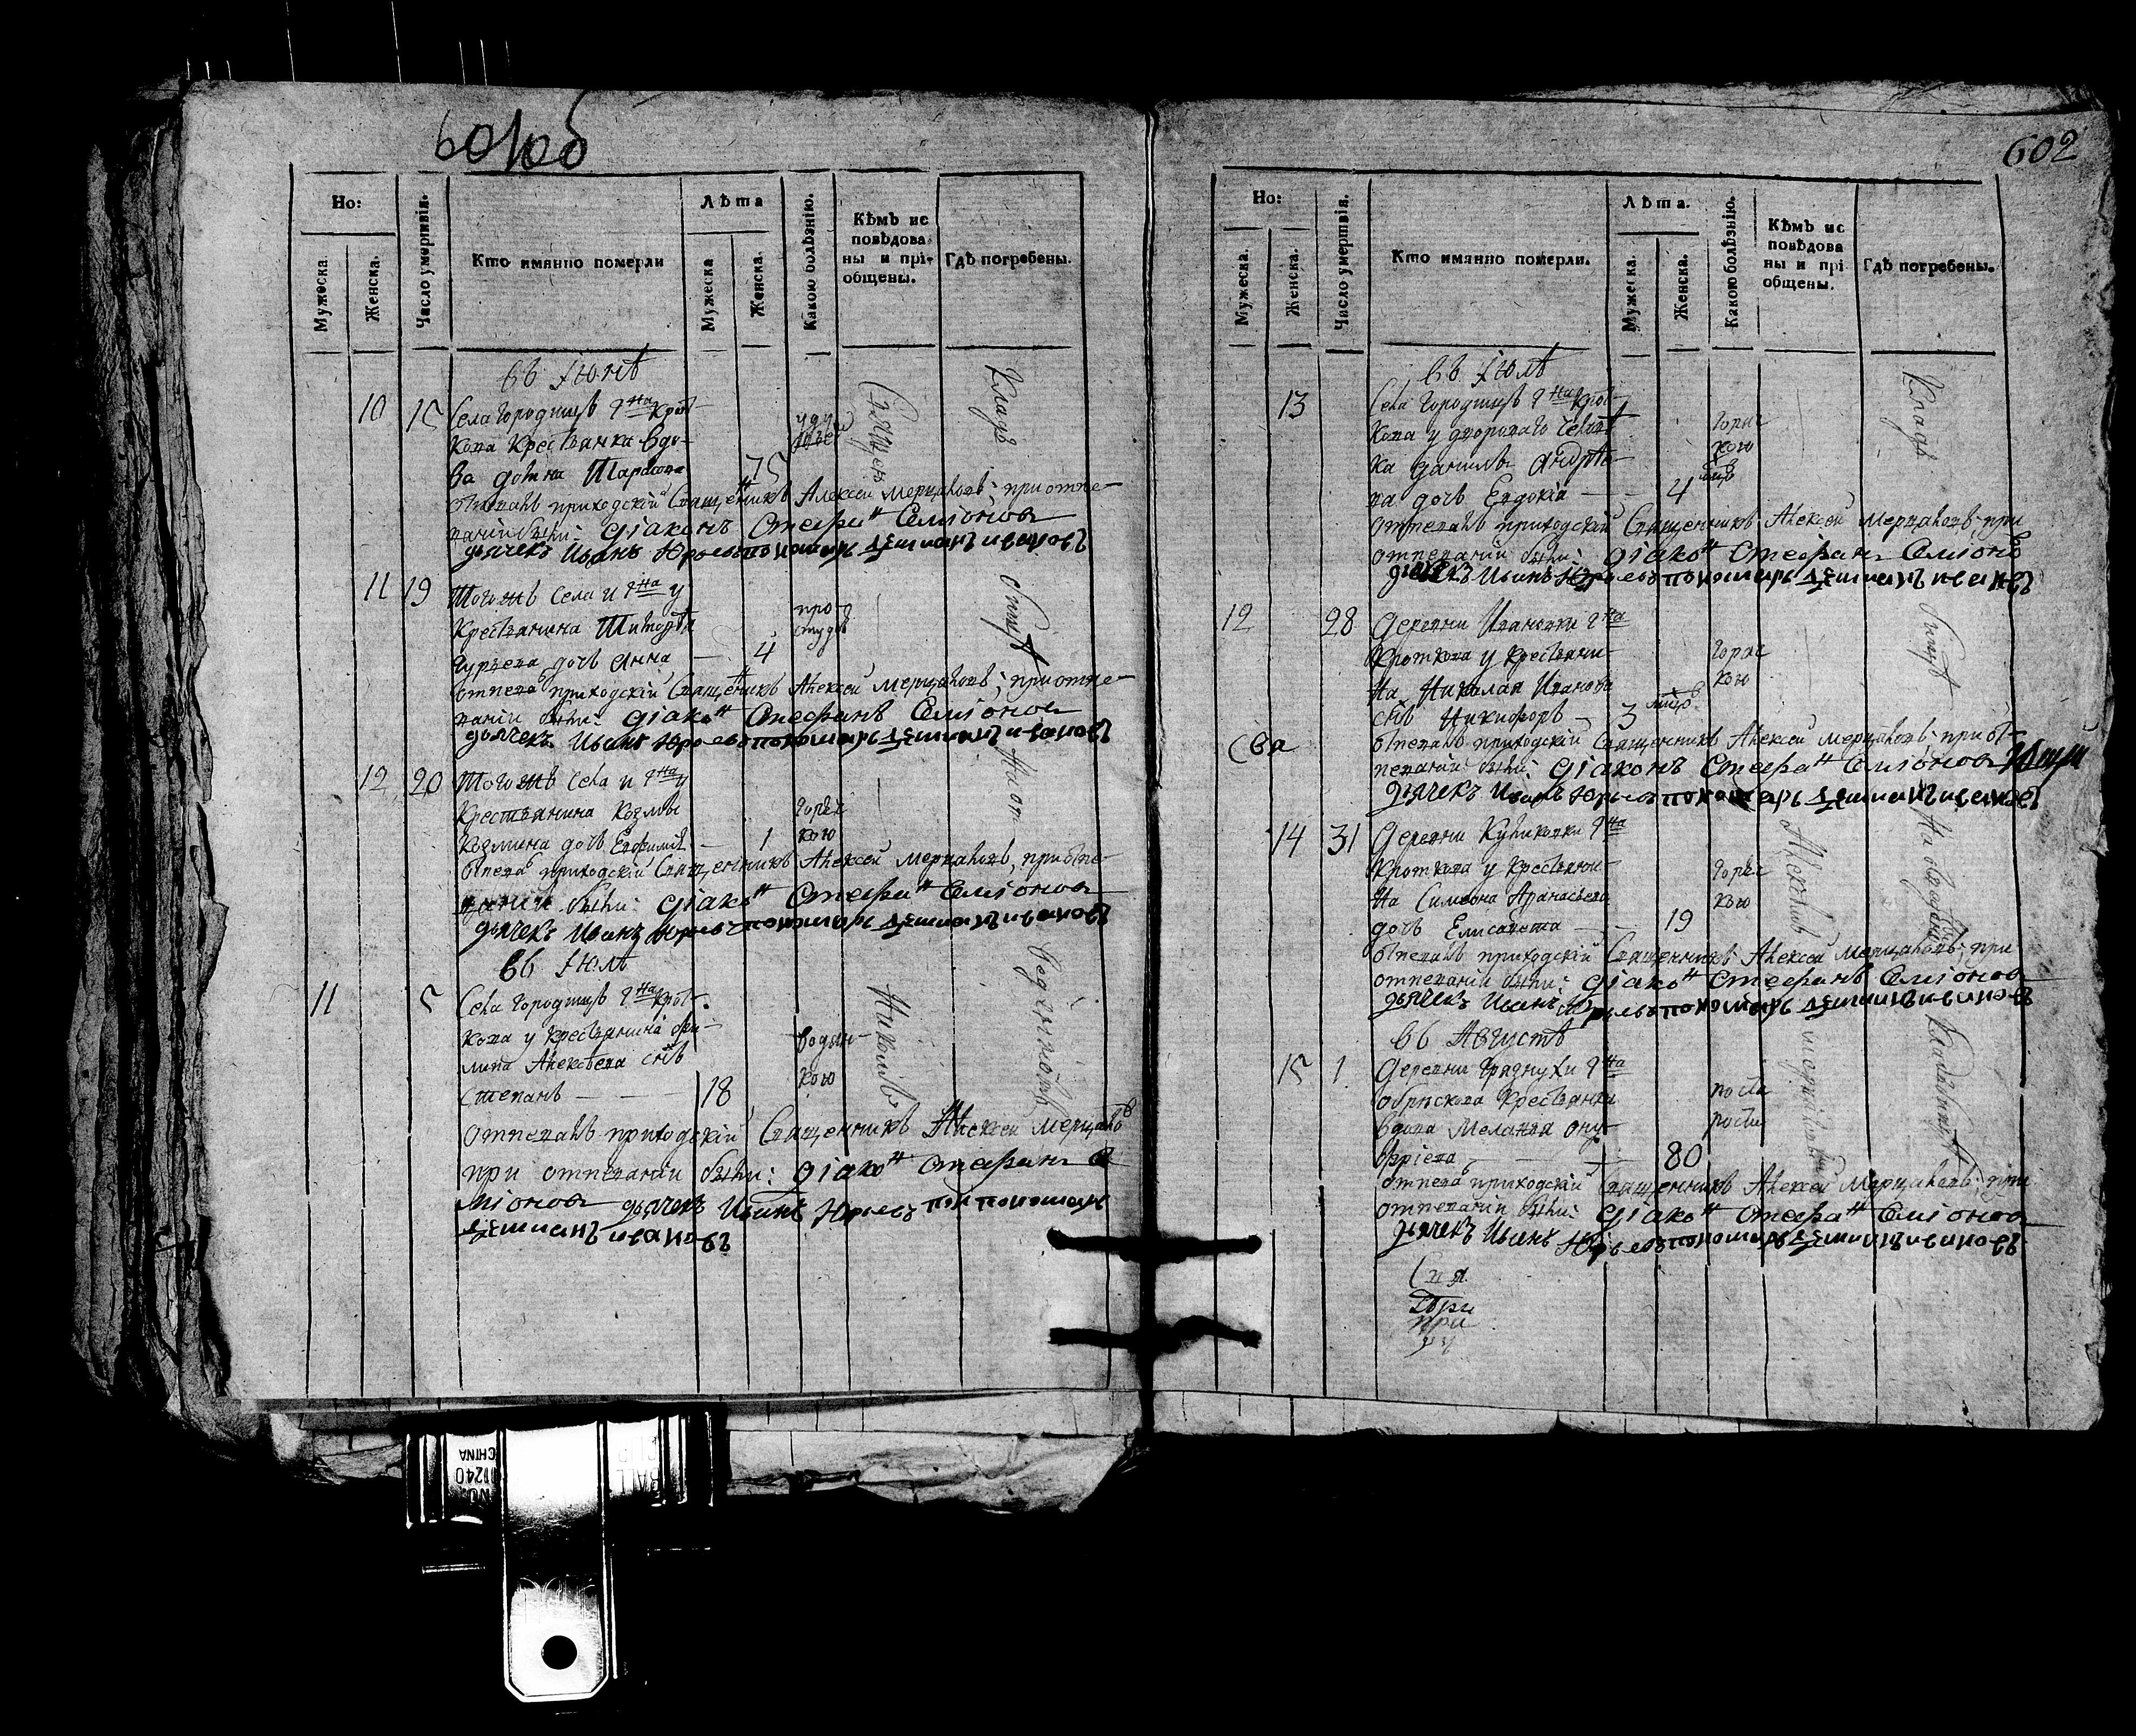 601об
Но:
Лѣта
Мужеска
Женска.
Число умертвія.
Кто имянно померли
Мужеска
Женска.
Какою болѣзнію.
Кѣмъ ис
повѣдова
ны и прі-
общены.
Гдѣ погребены.
въ Іюнѣ
10 15 Села Городищъ гна Крот-
кова Крестьянка вдо-
ва
75
отпевалъ приходскій Священникъ Алексей Мерцаловъ; при отпе-
ваніи были: діаконъ Стефанъ Симіоновъ
дьячекъ Иванъ Юрьевъ пономарь Демианъ Ивановъ
11 19 Тогожъ Села и гна у
Крестьянина
Гурьева дочь Анна — 4
про
студы
отпевалъ приходскій Священникъ Алексей Мерцаловъ; при отпе-
ваніи были: діаконъ Стефанъ Симіоновъ
дьячекъ Иванъ Юрьевъ пономарь Демианъ Ивановъ
12 20 Тогожъ Села и гна у
Крестьянина Козмы
Козмина дочь Евфимія — 1
горяч
кою
отпевалъ приходскій Священникъ Алексей Мерцаловъ, при отпе-
ваніи были: діаконъ Стефанъ Симіоновъ
дьячекъ Иванъ Юрьевъ пономарь Демианъ Ивановъ
въ Іюлѣ
11 5 Села Городищъ гна Крот-
кова у Крестьянина Фи-
липа Алексѣева сынъ
Степанъ — 18
водян-
кою
отпевалъ приходскій Священникъ Алексей Мерцаловъ
при отпеваніи были: діаконъ Стефанъ Си
міоновъ дьячекъ Иванъ Юрьевъ пономарь
Демианъ Ивановъ
602
Но:
Лѣта.
Мужеска.
Женска.
Число умертвія.
Кто имянно померли.
Мужеска.
Женска.
Какою болѣзнію.
Кѣмъ ис
повѣдова
ны и прі
общены.
Гдѣ погребены.
въ Іюлѣ
13 Села Городищъ гна Крот-
кова у двороваго человѣ
ка Данилы Андрѣе-
ва дочь Евдокія — 4
горяч
кою
отпевалъ приходскій Священникъ Алексей Мерцаловъ при
отпеваніи были: діаконъ Стефанъ Симіоновъ
дьячекъ Иванъ Юрьевъ пономарь Демианъ Ивановъ
12 28 Деревни Ивановки гна
Кроткова у Крестьяни-
на Николая Иванова
сынъ Никифоръ — 3
горяч
кою
отпевалъ приходскій Священникъ Алексей Мерцаловъ при от-
певаніи были: діаконъ Стефанъ Симіоновъ
дьячекъ Иванъ Юрьевъ пономарь Демианъ Ивановъ
14 31 Деревни Куликовки гна
Кроткова у Крестьяни-
на Симеона Афанасьева
дочь Елисавета — 19
горяч
кою
отпевалъ приходскій Священникъ Алексей Мерцаловъ; при
отпеваніи были: діаконъ Стефанъ Симіоновъ
дьячекъ Иванъ Юрьевъ пономарь Демианъ Ивановъ
въ Августѣ
15 1 Деревни Грязнухи гна
Крестьянка
вдова Меланья Ону-
фріева — 80
отпевалъ приходскій Священникъ Алексей Мерцаловъ; при
отпеваніи были: діаконъ Стефанъ Симіоновъ
дьячекъ Иванъ Юрьевъ пономарь Демианъ Ивановъ
CHINA